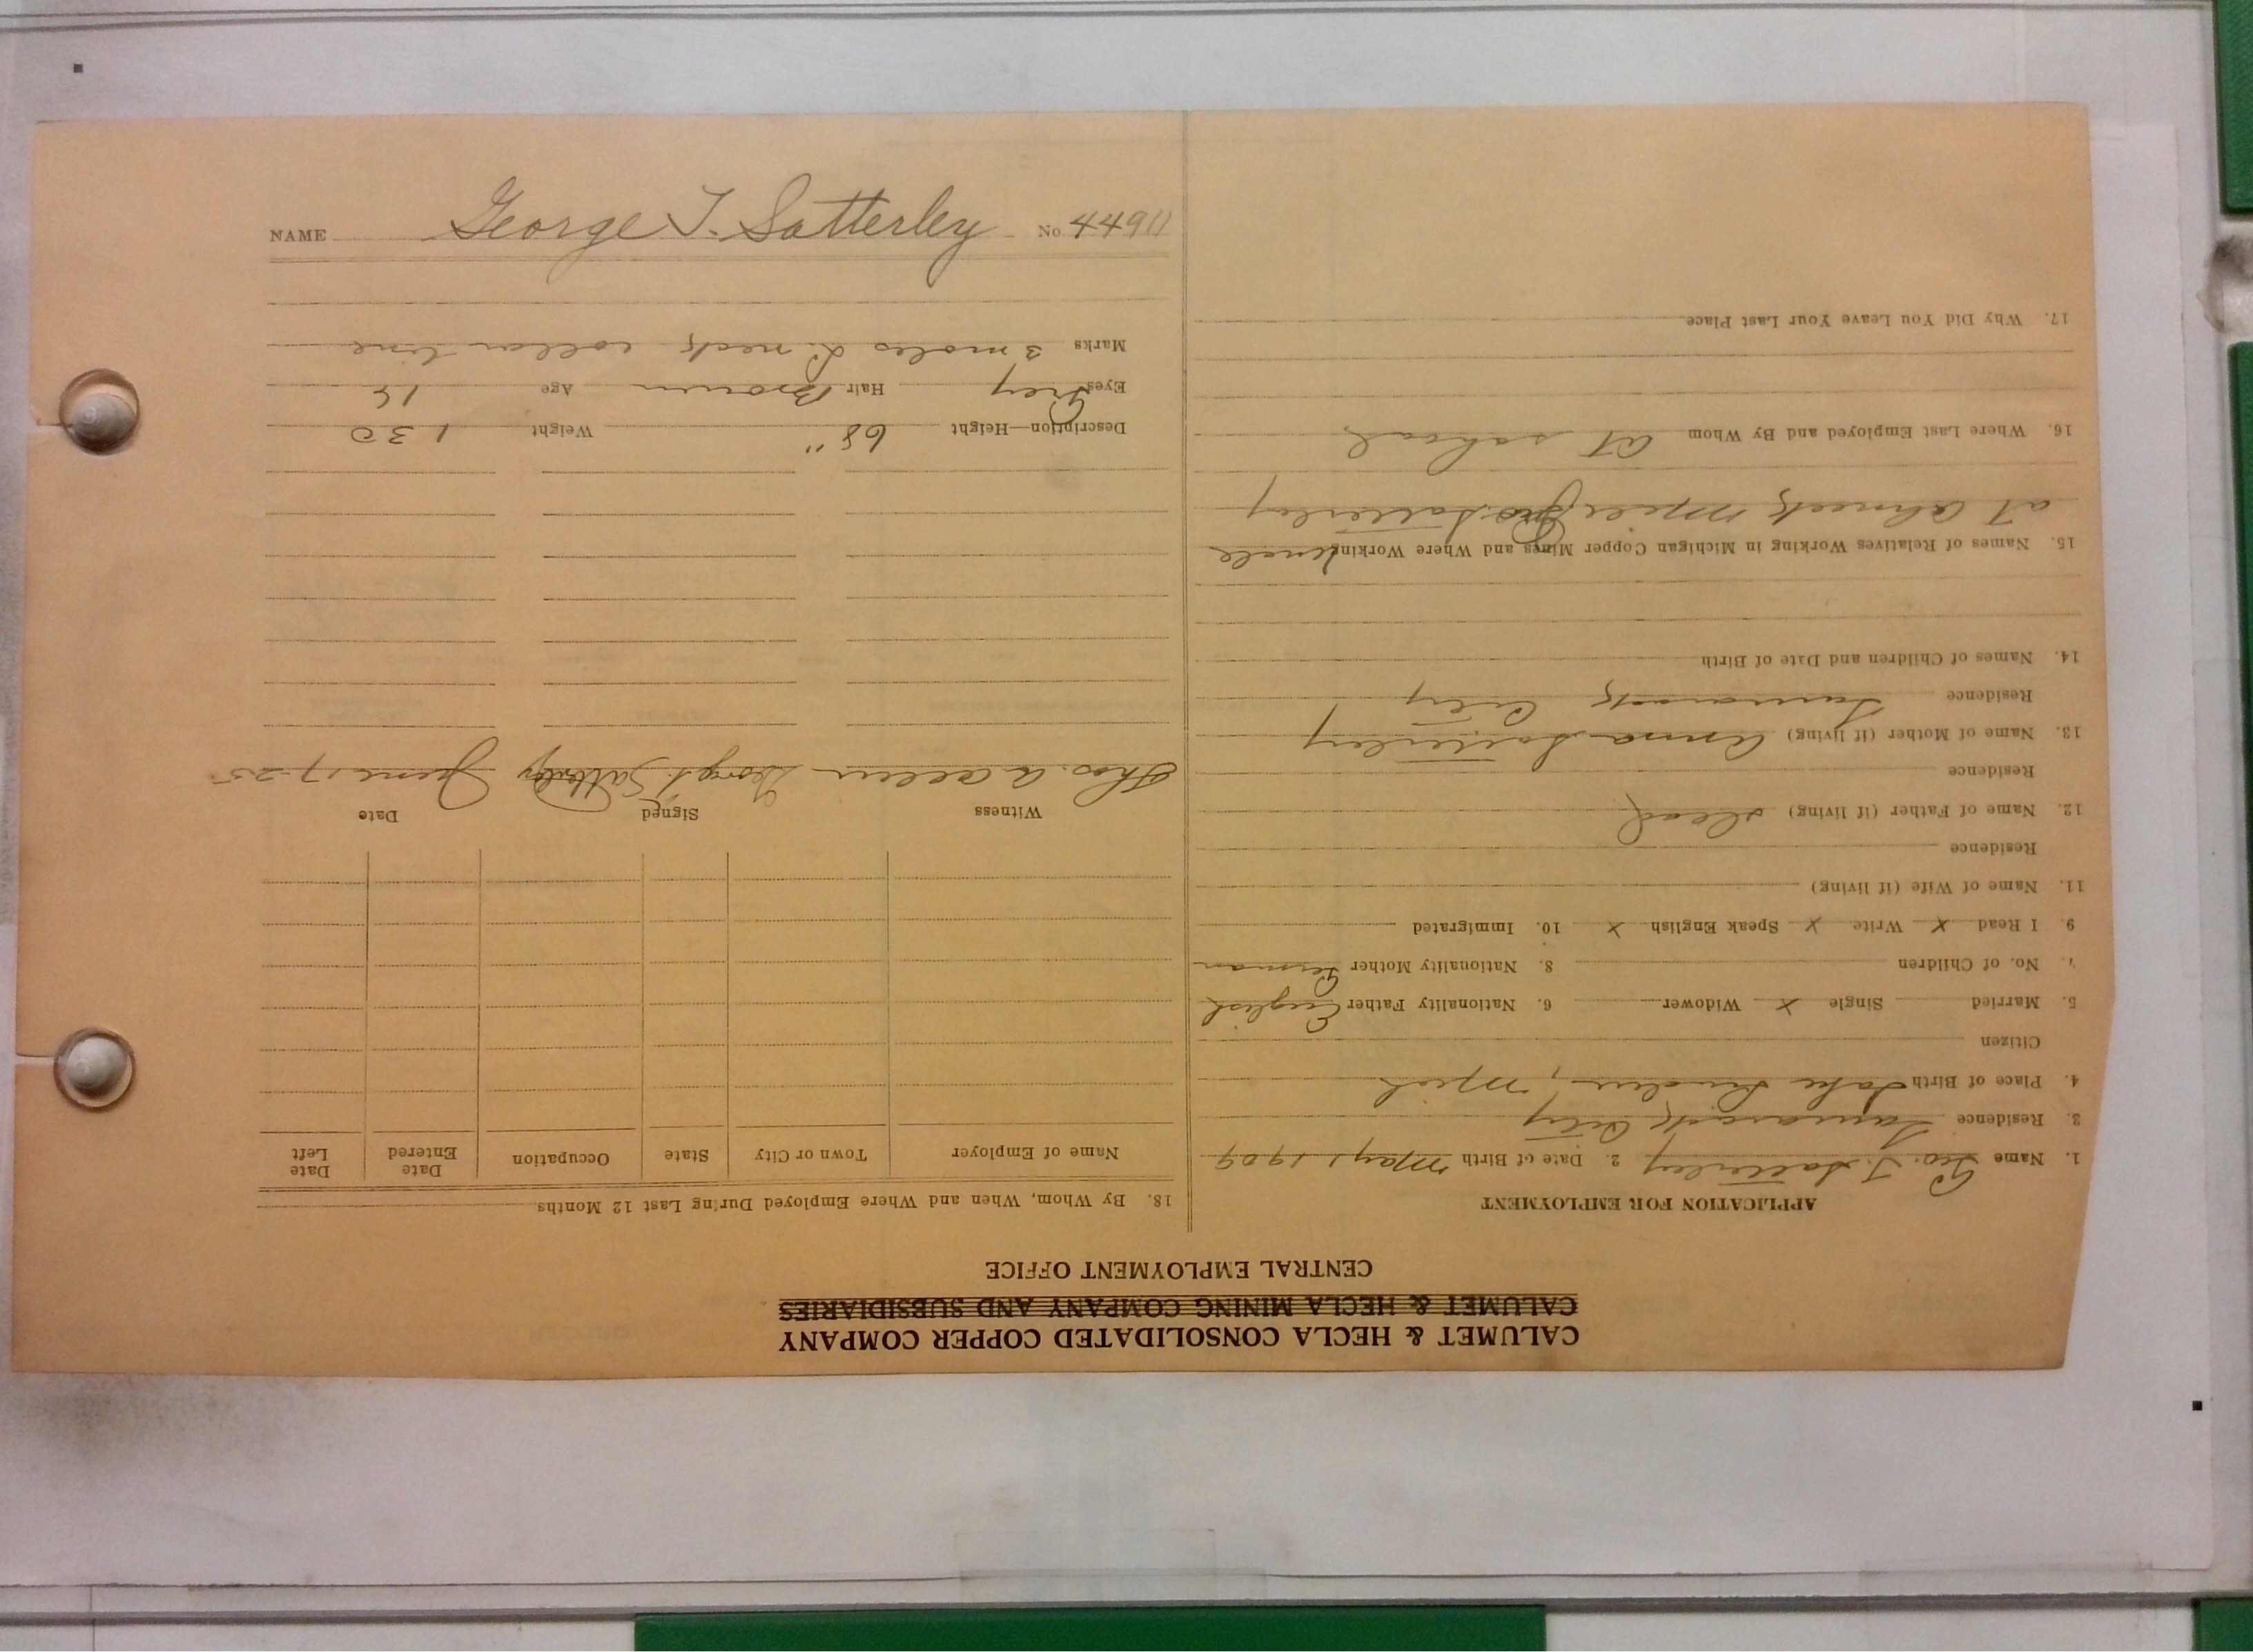 CALUMET & HECLA CONSOLIDATED COPPER COMPANY
CALUMET & HECLA MINING COMPANY AND SUBSIDIARIES
CENTRAL EMPLOYMENT OFFICE
APPLICATION FOR EMPLOYMENT
1. Name Geo. T. Satterley 2. Date of Birth May 1 1909
3. Residence Tamarack City
4. Place of Birth Lake Linden, Mich
Citizen
5. Married Single X Widower 6. Nationality Father English
7. No. of Children 8. Nationality Mother German
9. I Read X Write X Speak English X 10. Immigrated
11. Name of Wife (if living)
Residence
12. Name of Father (if living) dead
Residence
13. Name of Mother (if living) Anna Satterley
Residence Tamarack City
14. Names of Children and Date of Birth
15. Names of Relatives Working in Michigan Copper Mines and Where Working Uncle
at Ahmeek Mill Geo. Satterley
16. Where Last Employed and By Whom at school
17. Why Did You Leave Your Last Place
18. By Whom, When and Where Employed During Last 12 Months
Name of Employer Town or City State Occupation Date Entered Date Left
Witness Signed Date
Thos. A Allen George T. Satterley June 17-25
Description—Height 68" Weight 130
Eyes Grey Hair Brown Age
Marks 3 moles L. neck collar line
NAME George T. Satterley No 44911